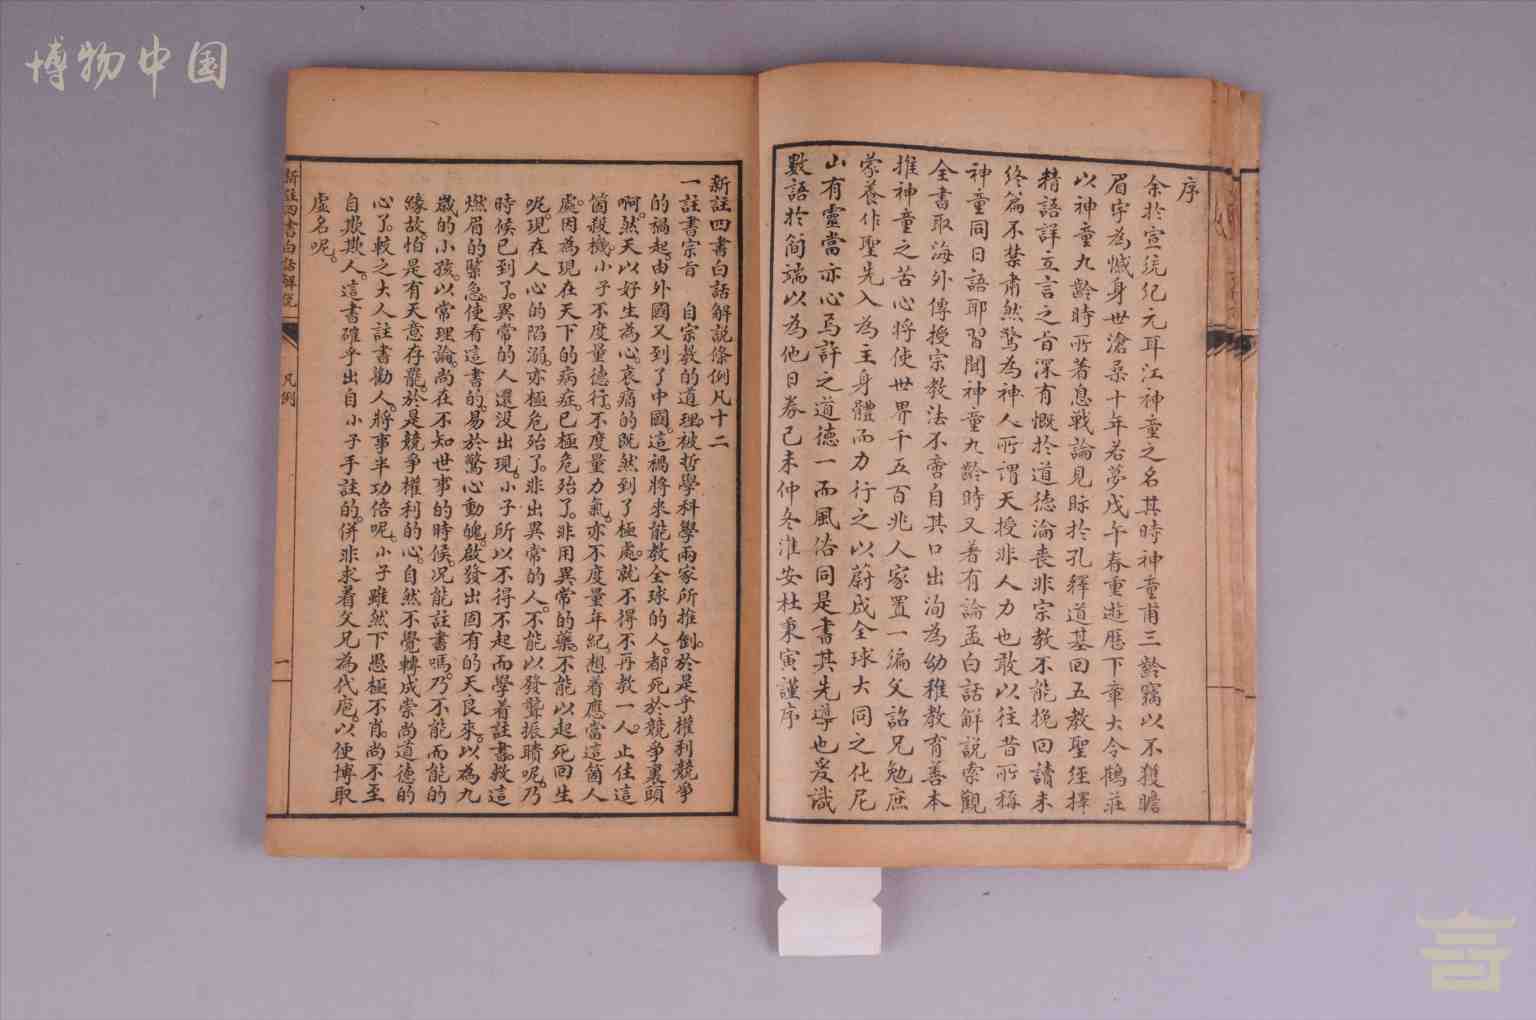 博物中国
序
余於宣統紀元耳江神童之名其時神童甫三齡竊以不獲瞻
眉宇為憾身世滄桑十年若夢戊午春重遊歷下章大令鶴莊
以神童九齡時所著息戰論見眎於孔釋道基回五教聖經擇
精語詳立言之旨深有慨於道德淪喪非宗教不能挽回讀未
終篇不禁肅然驚為神人所謂天授非人力也敢以往昔所稱
神童同日語耶習聞神童九齡時又著有論孟白話解說索觀
全書取海外傳授宗教法不啻自其口出洵為幼稚教育善本
推神童之苦心將使世界千五百兆人家置一編父詔兄勉庶
蒙養作聖先入為主身體而力行之以蔚成全球大同之化尼
山有靈當亦心焉許之道德一而風俗同是書其先導也爰識
數語於簡端以為他日券己未仲冬淮安杜秉寅謹序
新註四書白話解說條例凡十二
一註書宗旨 自宗教的道理。被哲學科學兩家所推倒。於是乎權利競爭
的禍起。由外國又到了中國。這禍將來能教全球的人。都死於競爭裏頭
啊。然天以好生為心。哀痛的既然到了極處。就不得不再教一人。止住這
箇殺機。小子不度量德行。不度量力氣。亦不度量年紀。想着應當這箇人
處。因為現在天下的病症。已極危殆了。非用異常的藥。不能以起死回生
呢。現在人心的陷溺。亦極危殆了。非出異常的人。不能以發聾振聵呢。乃
時候已到了。異常的人還沒出現。小子所以不得不起而學着註書。救這
燃眉的緊急。使看這書的。易於驚心動魄。啟發出固有的天良來。以為九
歲的小孩。以常理論。尚在不知世事的時候。况能註書嗎。乃不能而能的
緣故。怕是有天意存罷。於是競爭權利的心。自然不覺轉成崇尚道德的
心了。較之大人註書勸人。將事半功倍呢。小子雖然下愚極不肖。尚不至
自欺欺人。這書確乎出自小子手註的。併非求着父兄為代庖。以便博取
虛名呢。
新註四書白話解說
凡例
一